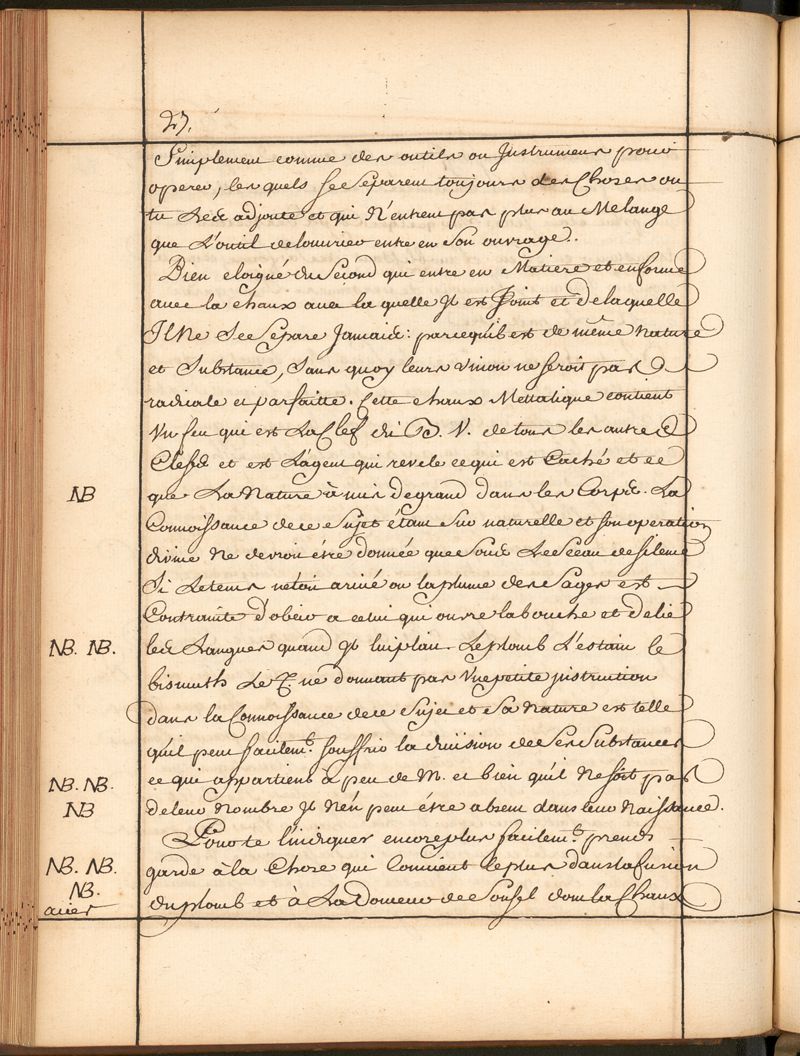 27.
Simplement comme des outils ou Instrumens pour
operer, les quels se separent toujours des Choses ou
tu les adjoute et qui N'entrent pas plus au Melange
que L'outil de louvrier entre en Son ouvrage.
Bien eloigné du Second qui entre en Matiere et en forme
avec la chaux avec la quelle Jl est Joint et de laquelle
Il Ne Se Separe Jamais: parcequ'il est de même Nature
et Substance, Sans quoy leurs Union ne seroit pas
radicale et parfaitte. Cette chaux Mettalique contient
Un feu qui est La Clef du B. V. de tous les autres
Clefs et est L'agent qui revele ce qui est Caché et ce
NB
que La Nature à mis de grand dans les Corps. La
Connoissance de ce Sujet étant Sur naturelle et son operation
divine Ne devroit être donnée que Sous Le Sceau de Silence
Si Letems n'etoit arivé ou la plume des Sages est
Contrainte d'obeir a celui qui ouvre la bouche et delie
NB. NB.
les Langues quand Jl lui plait. Le plomb L'estain le
bismuth Le ne donnant pas Une petite jnstruction
dans la Connoissance de ce Sujet et Sa Nature est telle
quil peut facilemt. souffrir la division de Ses Substances
NB. NB.
ce qui appartient à peu de M. et bien qu'il Ne Soit pas
NB
de leur Nombre Jl N'en peut être absent dans leur Naissance.
Pour te l'indiquer encore plus facilemt. prends
NB. NB.
garde à la Chose qui Convient le plus dans la fusion
NB.
acier
du plomb et à La Domeur de Son sel dont la Chaux